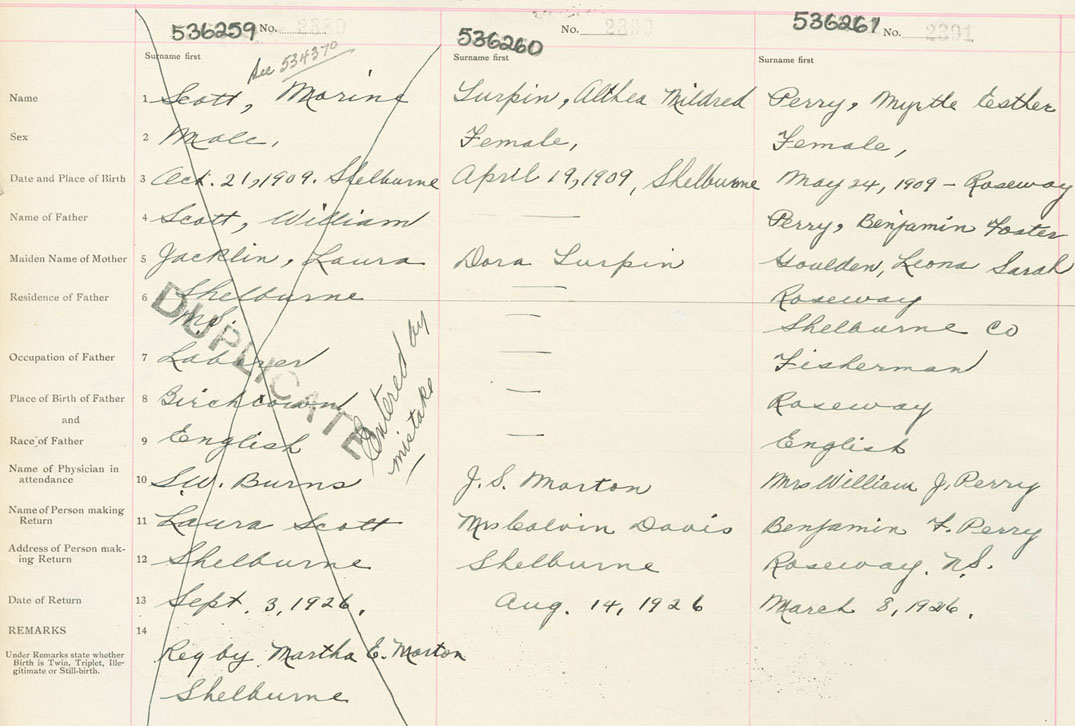 536259 No. 2389 536260 No. 2390 536261 No. 2391
See 534370
Surname first Surname first Surname first
Name 1 Scott, Marine Turpin, Althea Mildred Perry, Myrtle Esther
Sex 2 Male, Female, Female,
Date and Place of Birth 3 Oct. 21, 1909. Shelburne April 19, 1909, Shelburne May 24, 1909 - Roseway
Name of Father 4 Scott, William — Perry, Benjamin Foster
Maiden Name of Mother 5 Jacklin, Laura Dora Turpin Goulden, Leona Sarah
Residence of Father 6 Shelburne — Roseway
N.S. — Shelburne Co
DUPLICATE
Entered by
mistake
Occupation of Father 7 Laborer — Fisherman
Place of Birth of Father 8 Birchtown — Roseway
and
Race of Father 9 English — English
Name of Physician in
attendance 10 S.W. Burns J. S. Morton Mrs William J. Perry
Name of Person making
Return 11 Laura Scott Mrs Calvin Davis Benjamin F. Perry
Address of Person mak-
ing Return 12 Shelburne Shelburne Roseway, N.S.
Date of Return 13 Sept. 3, 1926. Aug. 14, 1926 March 8, 1926.
REMARKS 14
Under Remarks state whether
Birth is Twin, Triplet, Ille-
gitimate or Still-birth.
Reg by Martha E. Morton
Shelburne